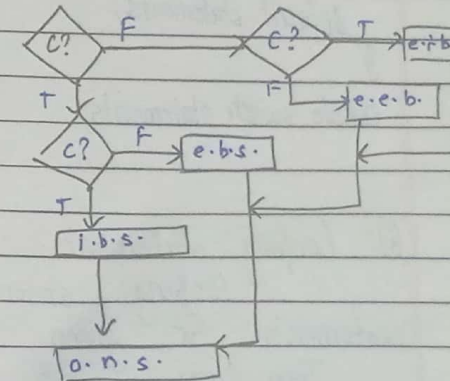 C? F C? T e.i.b
T F e.e.b.
C? F e.b.s.
T
i.b.s.
o.n.s.